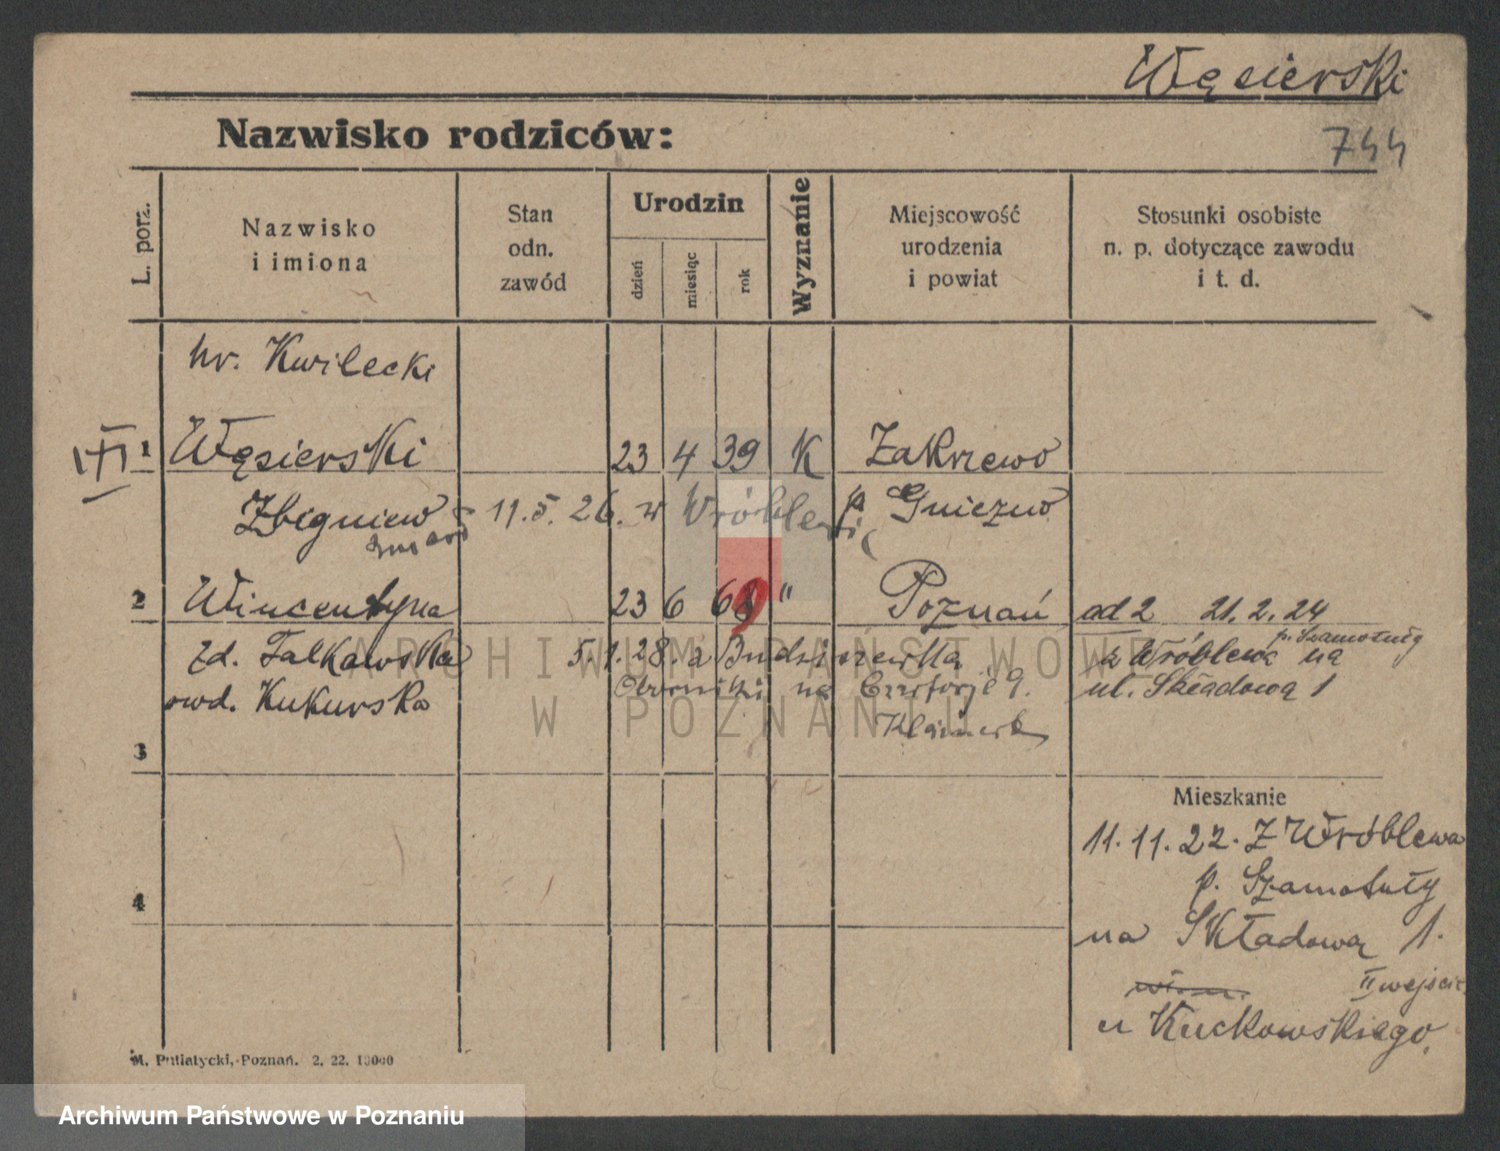 Węsierski
Nazwisko rodziców:
744
L. porz.
Nazwisko
i imiona
Stan
odn.
zawód
Urodzin
dzień
miesiąc
rok
Wyznanie
Miejscowość
urodzenia
i powiat
Stosunki osobiste
n. p. dotyczące zawodu
i t. d.
hr. Kwilecki
1 Węsierski 23 4 39 K Zakrzewo
Zbigniew 11.5.26. w p. Gniezno
zmarł
2 Wincentyna 23 6 68 9 " Poznań ad 2 21.2.24
p. Szamotuły
zd. Falkowska 5.1.28. z z Wróblewa na
owd. Kukurska na 9. ul. Składową 1
3
Mieszkanie
11.11.22. Z Wróblewa
p. Szamotuły
4
na Składową 1.
II wejście
u Kuckowskiego.
M. Putiatycki, Poznań. 2. 22. 10000
ARCHIWUM PAŃSTWOWE
W POZNANIU
Archiwum Państwowe w Poznaniu